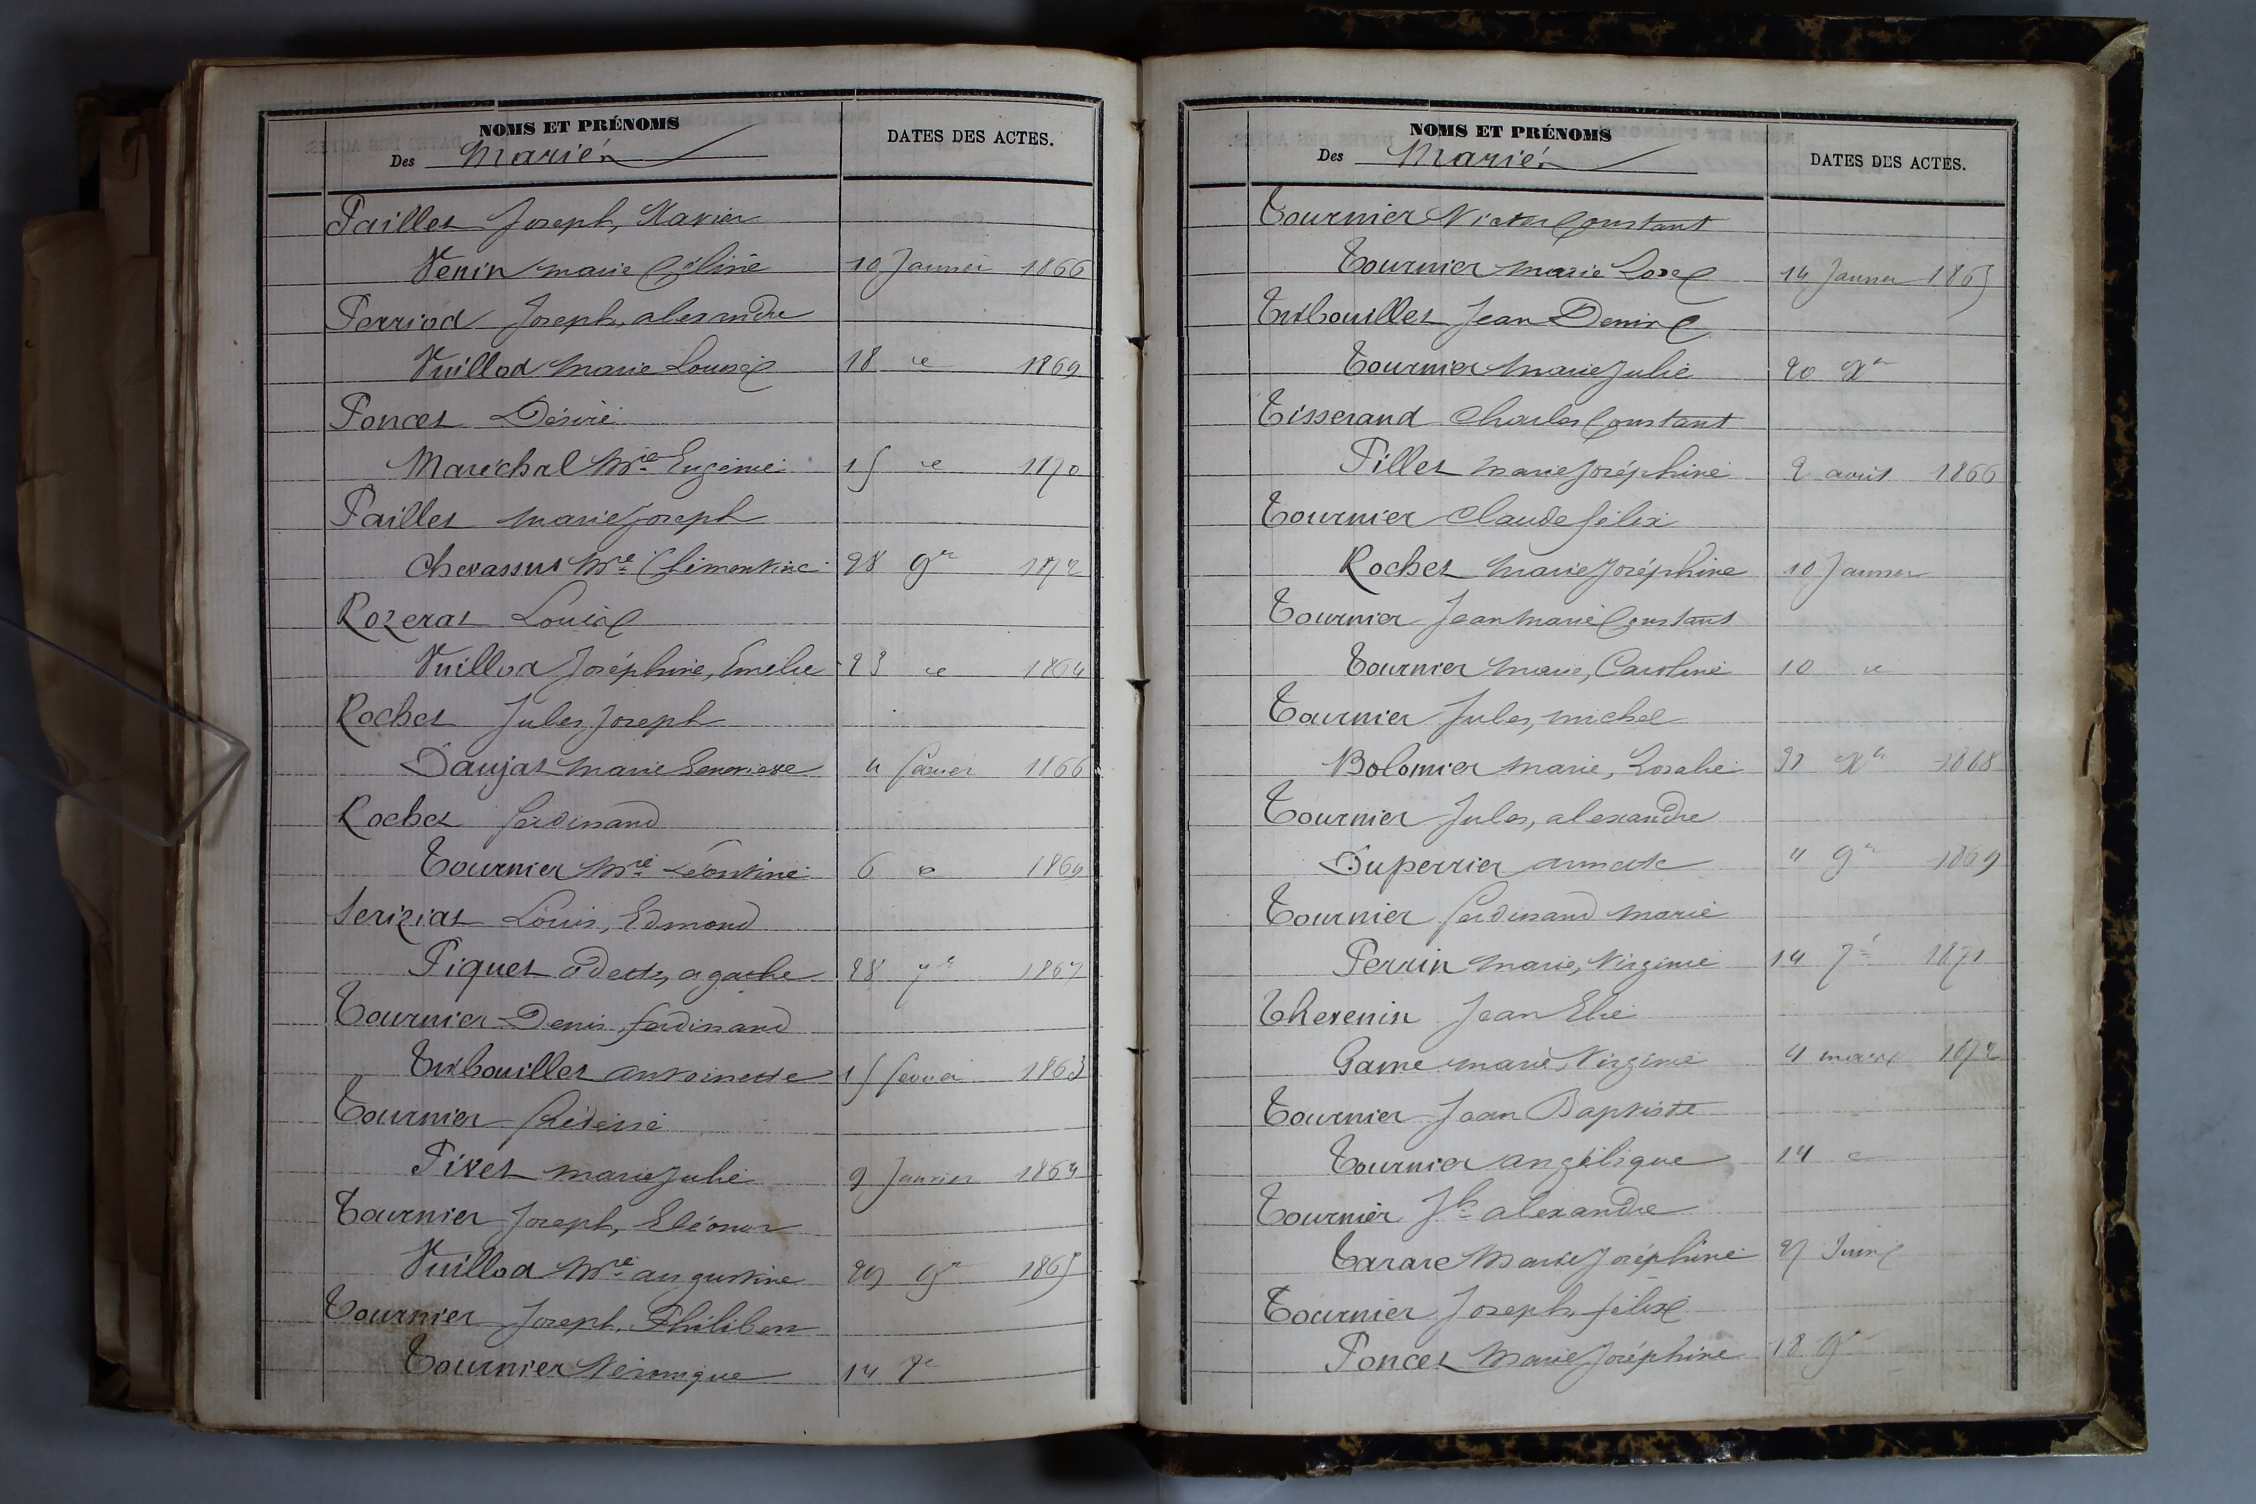 NOMS ET PRÉNOMS
Des Mariés
DATES DES ACTES.
Paillet Joseph, Xavier
Venin marie Céline 10 Janvier 1866
Perriod Joseph, alexandre
Vuillod Marie Louise 18 d 1869
Poncet Désiré
Maréchal Mie Eugénie 15 d 1870
Paillet Marie Joseph
Chevassus Mie Clémentine 28 9re 1872
Rozerat Louis
Vuillod Joséphine, Emélie 23 d 1864
Rochet Jules Joseph
Daujat Marie Genevieve 4 février 1866
Rochet ferdinand
Tournier Mie Léontine 6 d 1869
Seriziat Louis, Edmond
Piquet odette, agathe 28 7e 1867
Tournier Denis, ferdinand
Turbouillet antoinette 15 février 1863
Tournier Frédéric
Pivet marie Julie 9 Janvier 1864
Tournier Joseph, Eléonor
Vuillod Mie augustine 29 9re 1865
Tournier Joseph, Philiber
Tournier Véronique 14 7e
NOMS ET PRÉNOMS
Des Mariés
DATES DES ACTES.
Tournier Victor Constant
Tournier Marie Rose 14 Janvier 1865
Turbouillet Jean Denis
Tournier Marie Julie 20 Xre
Tisserand Charles Constant
Pillet Marie Joséphine 2 avril 1866
Tournier Claude félix
Rochet Marie Joséphine 10 Janvier
Tournier Jean Marie Constant
Tournier Marie, Caroline 10 d
Tournier Jules, michel
Bolomier Marie, Rosalie Xre 1868
Tournier Jules, alexandre
Duperrier annette 4 9re 1869
Tournier ferdinand Marie
Perrin Marie, Virginie 14 7e 1871
Thevenin Jean Elie
Game marie, Virginie 4 mars 1872
Tournier Jean Baptiste
Tournier angélique 14 d
Tournier Jh alexandre
Tarare Marie Joséphine 27 Juin
Tournier Joseph félix
Poncet Marie Joséphine 18 9re